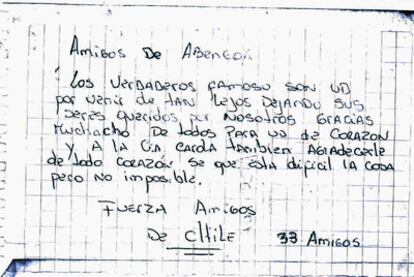 Amigos De Abengoa
Los verdaderos famoso son UD
por venir de tan lejos dejando sus
seres queridos por nosotros gracias
Muchacho De todos para UD de corazon
y A la Cia Carola tambien Agradecerle
de todo corazón se que esta dificil la cosa
pero no imposible.
Fuerza Amigos
De CHILE 33 Amigos